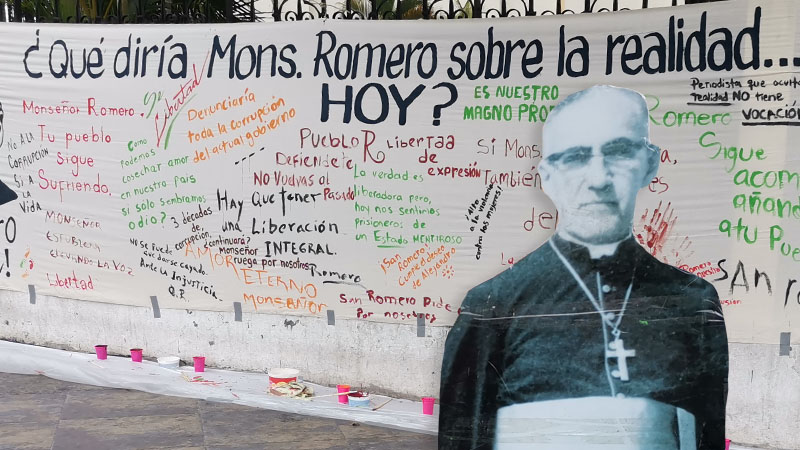 ¿Qué diría Mons. Romero sobre la realidad...
HOY?
Monseñor Romero.
Tu pueblo
Sigue
Sufriendo,
Monseñor
Estubiera
elevando la voz
Libertad
No a la
corrupción
Si a
la vida
Sí
Libertad
Denunciaría
toda la corrupción
del actual gobierno
Como
podemos
cosechar amor
en nuestro país
si solo sembramos
odio?
3 décadas
de
corrupción,
continuara?
No se puede
que darse cayado.
Ante la injusticia
Hay que tener
una Liberación
INTEGRAL.
Monseñor
ruega por nosotros
AMOR
ETERNO
MONSEÑOR
Pueblo
Defiendete
No vuelvas al
Pasado
R
Libertaa
de
expresión
La verdad es
liberadora pero,
hoy nos sentimos
prisioneros de
un Estado MENTIROSO
¡San
Romero!
Cuida el deseo
de Alejandro
Romero
San Romero Pide
Por nosotros
ES NUESTRO
MAGNO
Si Mons.
También
¡Alto
a la violencia
contra las mujeres!
Romero
Periodista que oculta
realidad NO tiene
VOCACIÓN
Sigue
acom
añan
a tu Pue
SAN